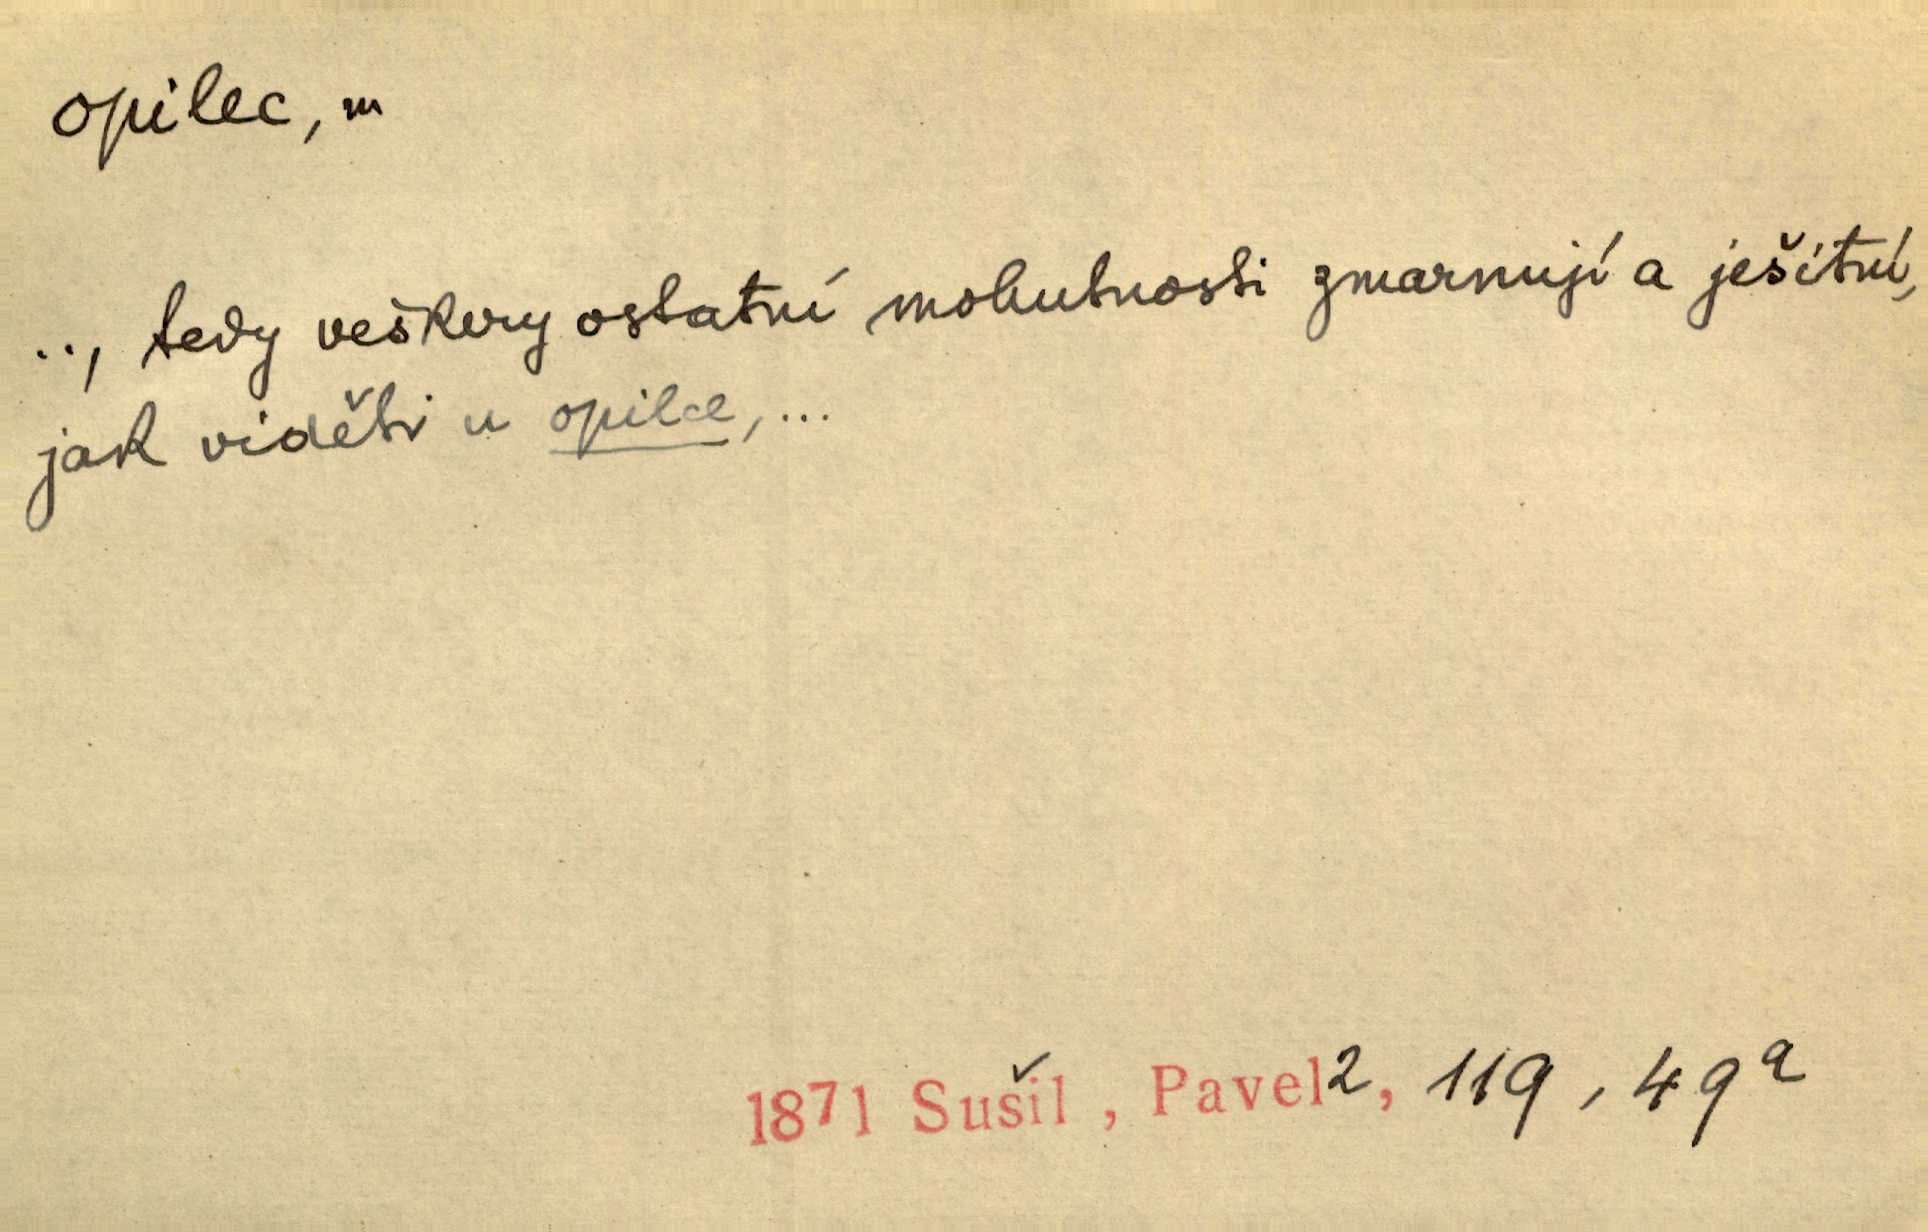 opilec, m
.., tedy veškery ostatní mohutnosti zmarnují a ješitní,
jak viděti u opilce, ...
1871 Sušil, Pavel 2, 119, 49a